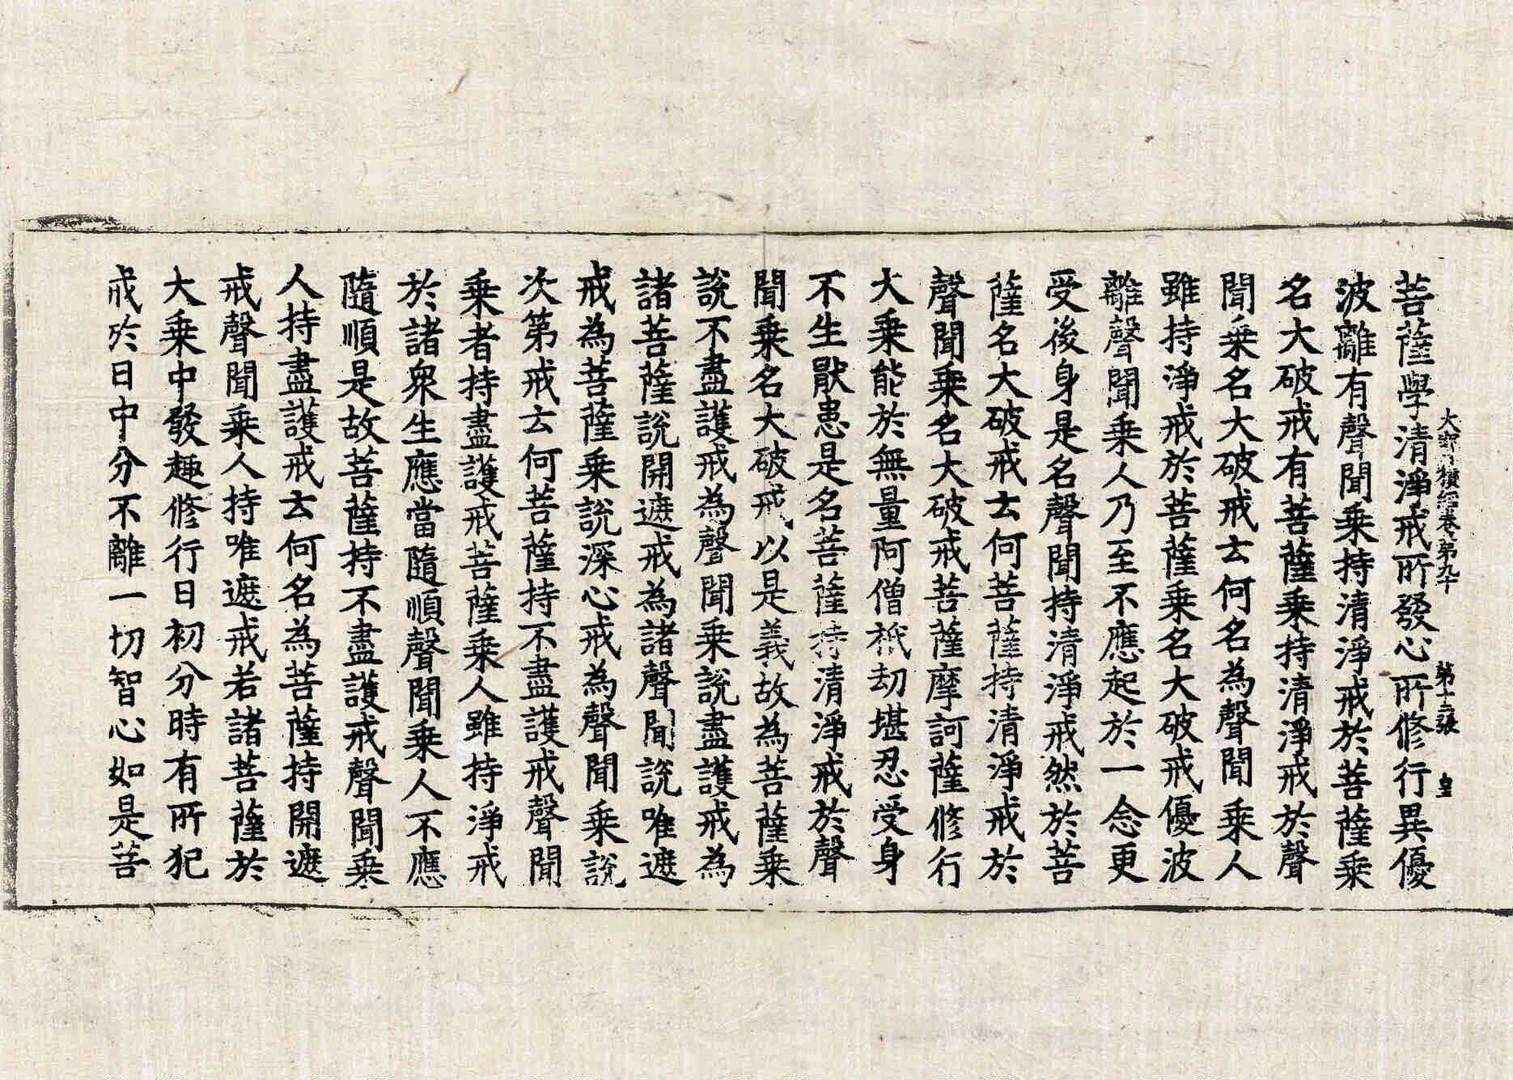 大寶積經卷第九十　第十三張　皇
菩薩學清淨戒所發心所修行異優
波離有聲聞乘持清淨戒於菩薩乘
名大破戒有菩薩乘持清淨戒於聲
聞乘名大破戒云何名為聲聞乘人
雖持淨戒於菩薩乘名大破戒優波
離聲聞乘人乃至不應起於一念更
受後身是名聲聞持清淨戒然於菩
薩名大破戒云何菩薩持清淨戒於
聲聞乘名大破戒菩薩摩訶薩修行
大乘能於無量阿僧祇劫堪忍受身
不生猒患是名菩薩持清淨戒於聲
聞乘名大破戒以是義故為菩薩乘
說不盡護戒為聲聞乘說盡護戒為
諸菩薩說開遮戒為諸聲聞說唯遮
戒為菩薩乘說深心戒為聲聞乘說
次第戒云何菩薩持不盡護戒聲聞
乘者持盡護戒菩薩乘人雖持淨戒
於諸眾生應當隨順聲聞乘人不應
隨順是故菩薩持不盡護戒聲聞乘
人持盡護戒云何名為菩薩持開遮
戒聲聞乘人持唯遮戒若諸菩薩於
大乘中發趣修行日初分時有所犯
戒於日中分不離一切智心如是菩